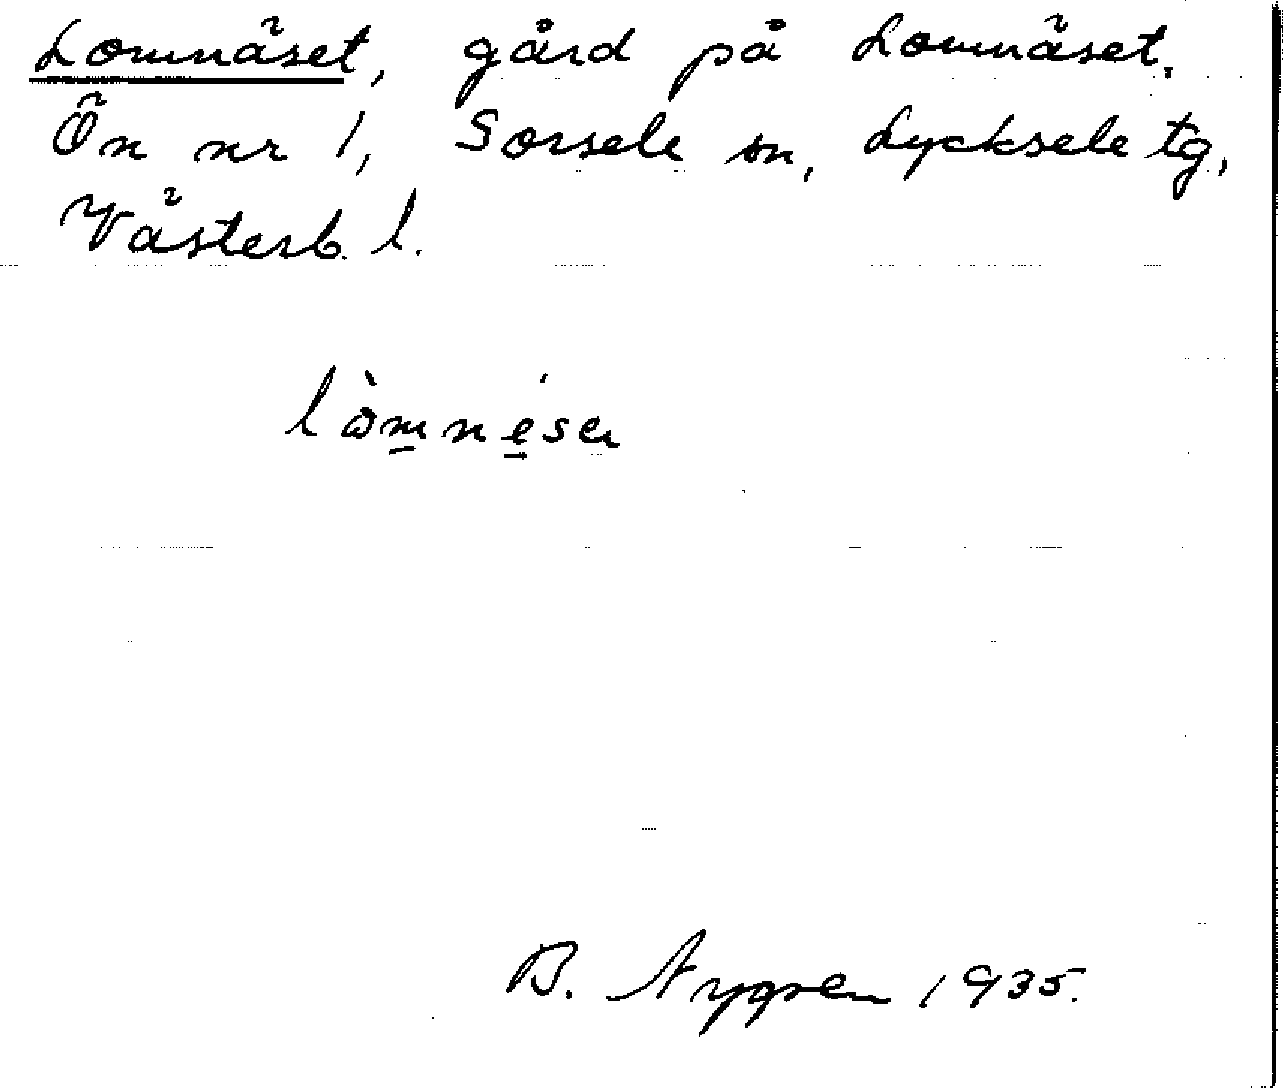 Lomnäset, gård på Lomnäset,
Ön nr 1, Sorsele sn, Lycksele tg,
Västerb. l.
lòmnésɐ
B. Nygren 1935.